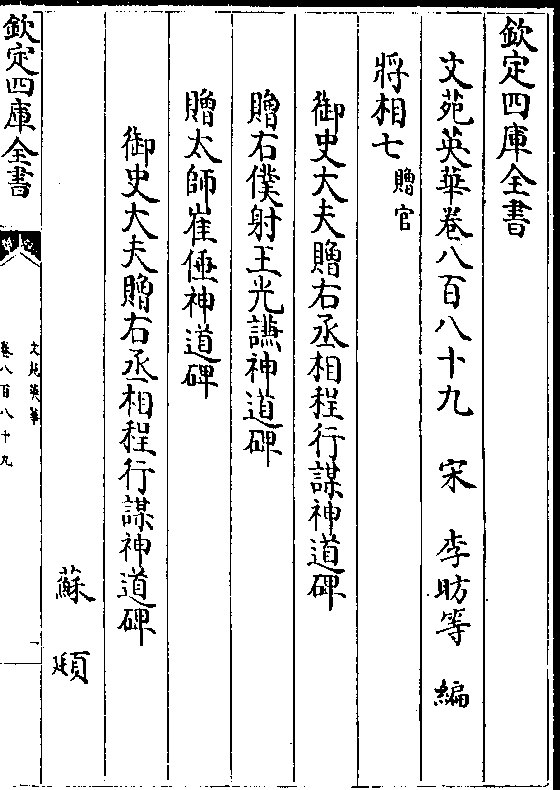 欽定四庫全書
文苑英華卷八百八十九　宋　李昉等　編
將相七 贈官
御史大夫贈右丞相程行謀神道碑
贈右僕射王光謙神道碑
贈太師崔倕神道碑
御史大夫贈右丞相程行謀神道碑
蘇頲
欽定四庫全書
文苑英華
卷八百八十九
一